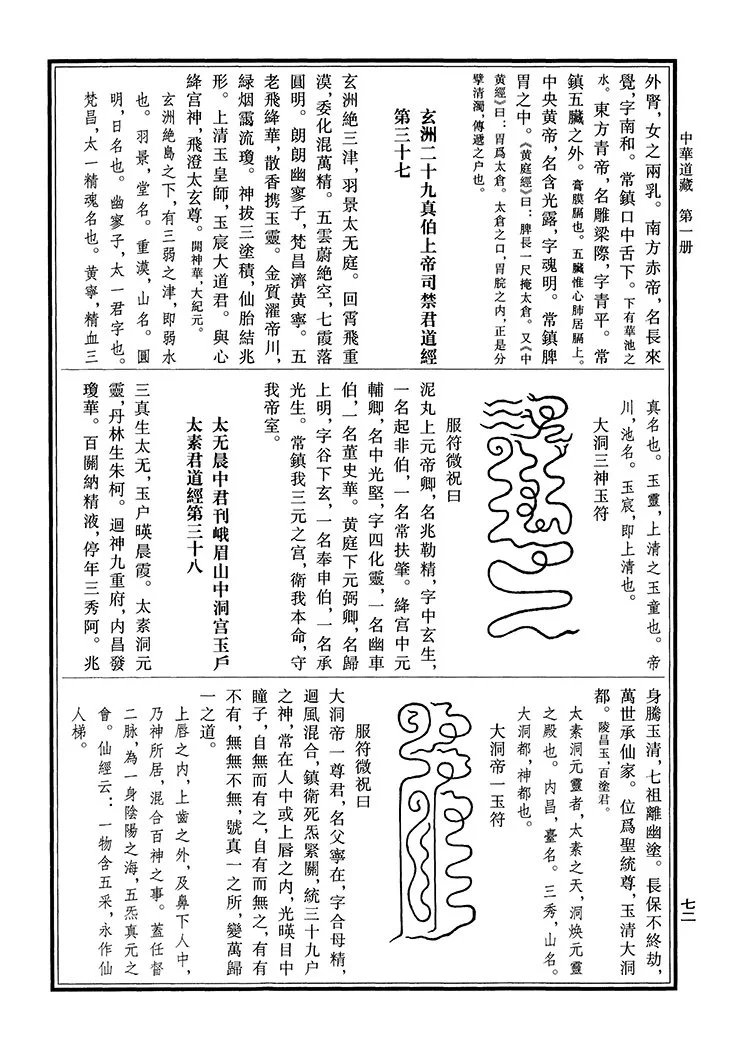 中華道藏　第一册
七二
外腎，女之兩乳。南方赤帝，名長來
覺，字南和。常鎮口中舌下。下有華池之
水。東方青帝，名雕梁際，字青平。常
鎮五臟之外。膏膜膈也。五臟惟心肺居膈上。
中央黄帝，名含光露，字魂明。常鎮脾
胃之中。《黄庭經》曰：脾長一尺掩太倉。又《中
黄經》曰：胃爲太倉。太倉之口，胃脘之内，正是分
擘清濁，傳遞之户也。
玄洲二十九真伯上帝司禁君道經
第三十七
玄洲絶三津，羽景太无庭。回霄飛重
漠，委化混萬精。五雲蔚絶空，七霞落
圓明。朗朗幽寥子，梵昌濟黄寧。五
老飛絳華，散香携玉靈。金質濯帝川，
緑烟靄流瓊。神拔三塗積，仙胎結兆
形。上清玉皇師，玉宸大道君。與心
絳宫神，飛澄太玄尊。開神華，大紀元。
玄洲絶島之下，有三弱之津，即弱水
也。羽景，堂名。重漠，山名。圓
明，日名也。幽寥子，太一君字也。
梵昌，太一精魂名也。黄寧，精血三
真名也。玉靈，上清之玉童也。帝
川，池名。玉宸，即上清也。
大洞三神玉符
服符微祝曰
泥丸上元帝卿，名兆勒精，字中玄生，
一名起非伯，一名常扶肇。絳宫中元
輔卿，名中光堅，字四化靈，一名幽車
伯，一名董史華。黄庭下元弼卿，名歸
上明，字谷下玄，一名奉申伯，一名承
光生。常鎮我三元之宫，衛我本命，守
我帝室。
太无晨中君刊峨眉山中洞宫玉戶
太素君道經第三十八
三真生太无，玉户暎晨霞。太素洞元
靈，丹林生朱柯。迴神九重府，内昌發
瓊華。百關納精液，停年三秀阿。兆
身騰玉清，七祖離幽塗。長保不終劫，
萬世承仙家。位爲聖統尊，玉清大洞
都。陵昌玉，百塗君。
太素洞元靈者，太素之天，洞焕元靈
之殿也。内昌，臺名。三秀，山名。
大洞都，神都也。
大洞帝一玉符
服符微祝曰
大洞帝一尊君，名父寧在，字合母精，
迴風混合，鎮衛死炁緊關，統三十九户
之神，常在人中或上唇之内，光暎目中
瞳子，自無而有之，自有而無之，有有
不有，無無不無，號真一之所，變萬歸
一之道。
上唇之内，上齒之外，及鼻下人中，
乃神所居，混合百神之事。蓋任督
二脉，為一身陰陽之海，五炁真元之
會。仙經云：一物含五采，永作仙
人梯。